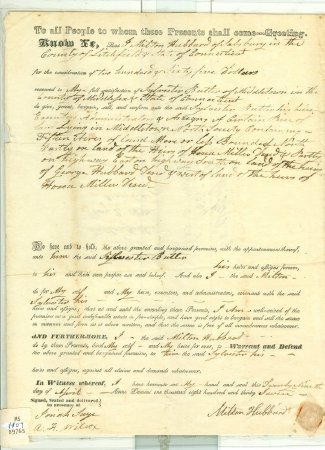 To all People to whom these Presents shall come—Greeting.
Know Ye, That I Milton Hubbard of Salsbury in the
County of Litchfield & State of Connecticut
for the consideration of Two hundred & Sixty five Dollars
received to My full satisfaction of Sylvester Butler of Middletown in the
County of Middlesex & State of Connecticut
do give, grant, bargain, sell and confirm unto the said Sylvester Butler his heirs
Executors Administrators & Assigns A Certain Piece of
Land Lying in Middletown North Society Containing
Fifteen Acres of Land More or less Bounded North
Partly on land of the Heirs of Miller Dead & Partly
on highway East on highway South on Land of the heirs
of George Hubbard Dead & West of land of the heirs of
Hosea Miller Dead
To have and to hold, the above granted and bargained premises, with the appurtenances thereof,
unto him the said Sylvester Butler
his heirs and assigns forever,
to his and their own proper use and behoof. And also I the said Milton
do for My self and My heirs, executors, and administrators, covenant with the said
Sylvester his
heirs and assigns, that at and until the ensealing these Presents, I Am well seized of the
premises as a good indefeasible estate in fee-simple, and have good right to bargain and sell the same
in manner and form as is above written, and that the same is free of all incumbrances whatsoever.
AND FURTHERMORE, I the said Milton Hubbard
do by these Presents, bind My self and My heirs for ever, to Warrant and Defend
the above granted and bargained premises, to him the said Sylvester his
heirs and assigns, against all claims and demands whatsoever.
In Witness whereof, I have hereunto set My hand and seal this Twenty Ninth
day of April Anno Domini one thousand eight hundred and thirty Seven
Signed, sealed and delivered
in presence of
Milton Hubbard
A. F. Wilcox